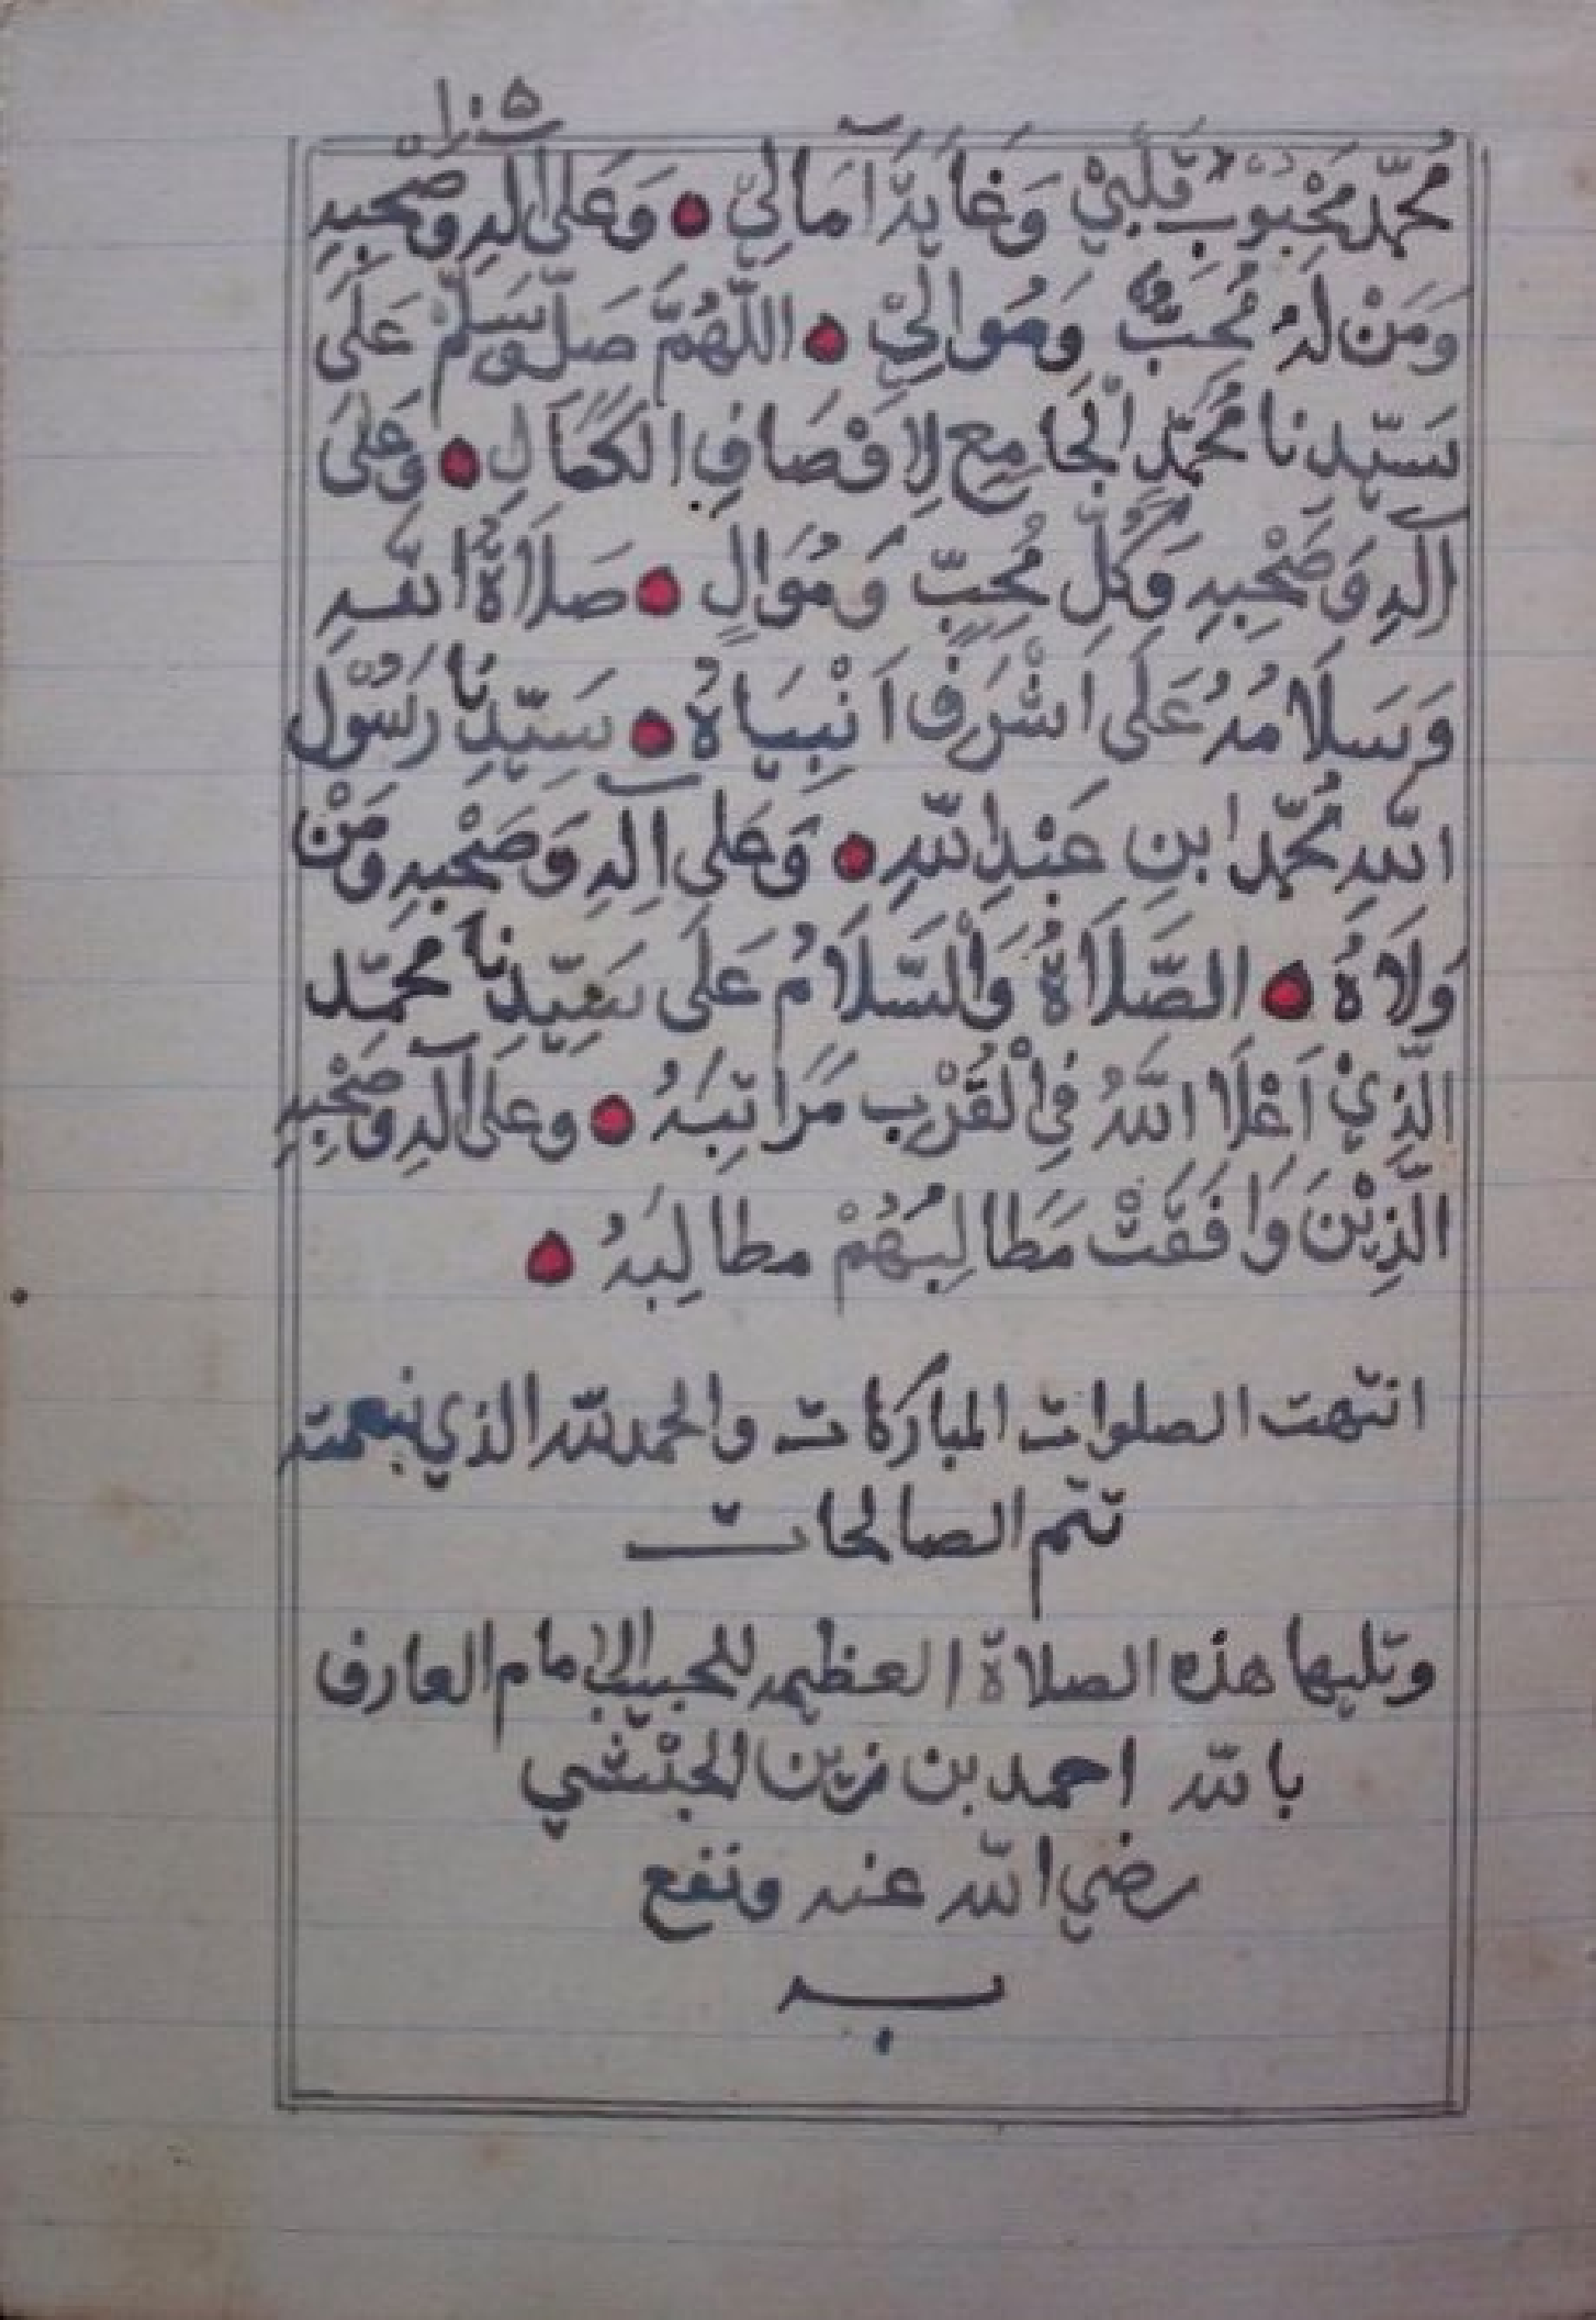 ١٠٥
مُحَمَّد مَحْبُوْبِ قَلْبِيْ وَغَايَةِ آمَالِيْ ه وَعَلَى آلِهِ وَصَحْبِهِ
وَمَنْ لَهُ مُحِبٌّ وَمُوالِيْ ه اللَّهُمَّ صَلِّ وَسَلِّمْ عَلَى
سَيِّدِنَا مُحَمَّدٍ الْجَامِعِ لِاَوْصَافِ الْكَمَالِ ه وَعَلَى
آلِهِ وَصَحْبِهِ وَكُلِّ مُحِبٍّ وَمُوَالٍ ه صَلَاةُ اللهِ
وَسَلَامُهُ عَلَى اَشْرَفِ اَنْبِيَاهُ ه سَيِّدِنَا رَسُوْلِ
اللهِ مُحَمَّد ابنِ عَبْدِاللهِ ه وَعَلى آلِهِ وَصَحْبِهِ وَمَنْ
وَلَاهُ ه الصَّلَاةُ وَالْسَّلَامُ عَلَى سَيِّدِنَا محمّد
الَّذِيْ اَعْلَا اللهُ فِي الْقُرْبِ مَرَاتِبَهُ ه وعلى آلِهِ وَصَحْبِهِ
الَّذِيْنَ وَافَقَتْ مَطَالِبُهُمْ مطالِبَهُ ه
انتهت الصلوات المباركات والحمدلله الذي بنعمته
تتم الصالحات
وتليها هذه الصلاة العظيمه للحبيب الإمام العارف
بالله احمد بن زين الحبشي
رضي الله عنه ونفع
به